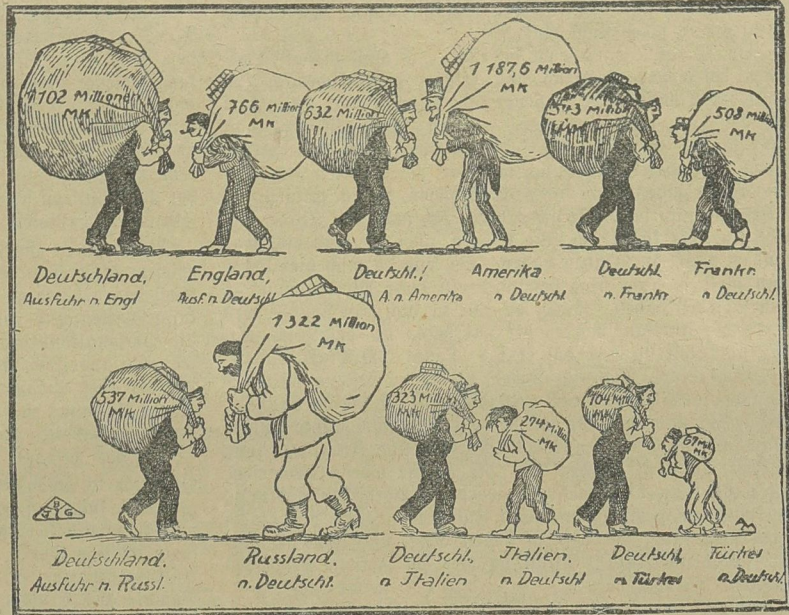 1102 Millionen
MK
766 Million
MK
632 Million
1187,6 Million
MK
543 Million
508 Million
MK
Deutschland,
Ausfuhr n. Engl
England,
Ausf. n. Deutschl
Deutschl.,
A. n. Amerika
Amerika
n Deutschl
Deutschl
n. Frankr
Frankr.
n Deutschl.
537 Million
MK
1322 Million
MK
323 Million
MK
274 Million
MK
104 Mill
MK
67 Mill
MK
B
J G
Deutschland,
Ausfuhr n. Russl.
Russland,
n. Deutschl.
Deutschl.,
n Italien
Italien,
n. Deutschl
Deutschl,
n Türkei
Türkei
n. Deutschl